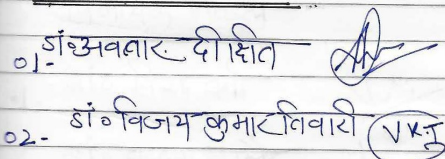 01- डॉ॰ अवतार दीक्षित
02- डॉ॰ विजय कुमार तिवारी VKT